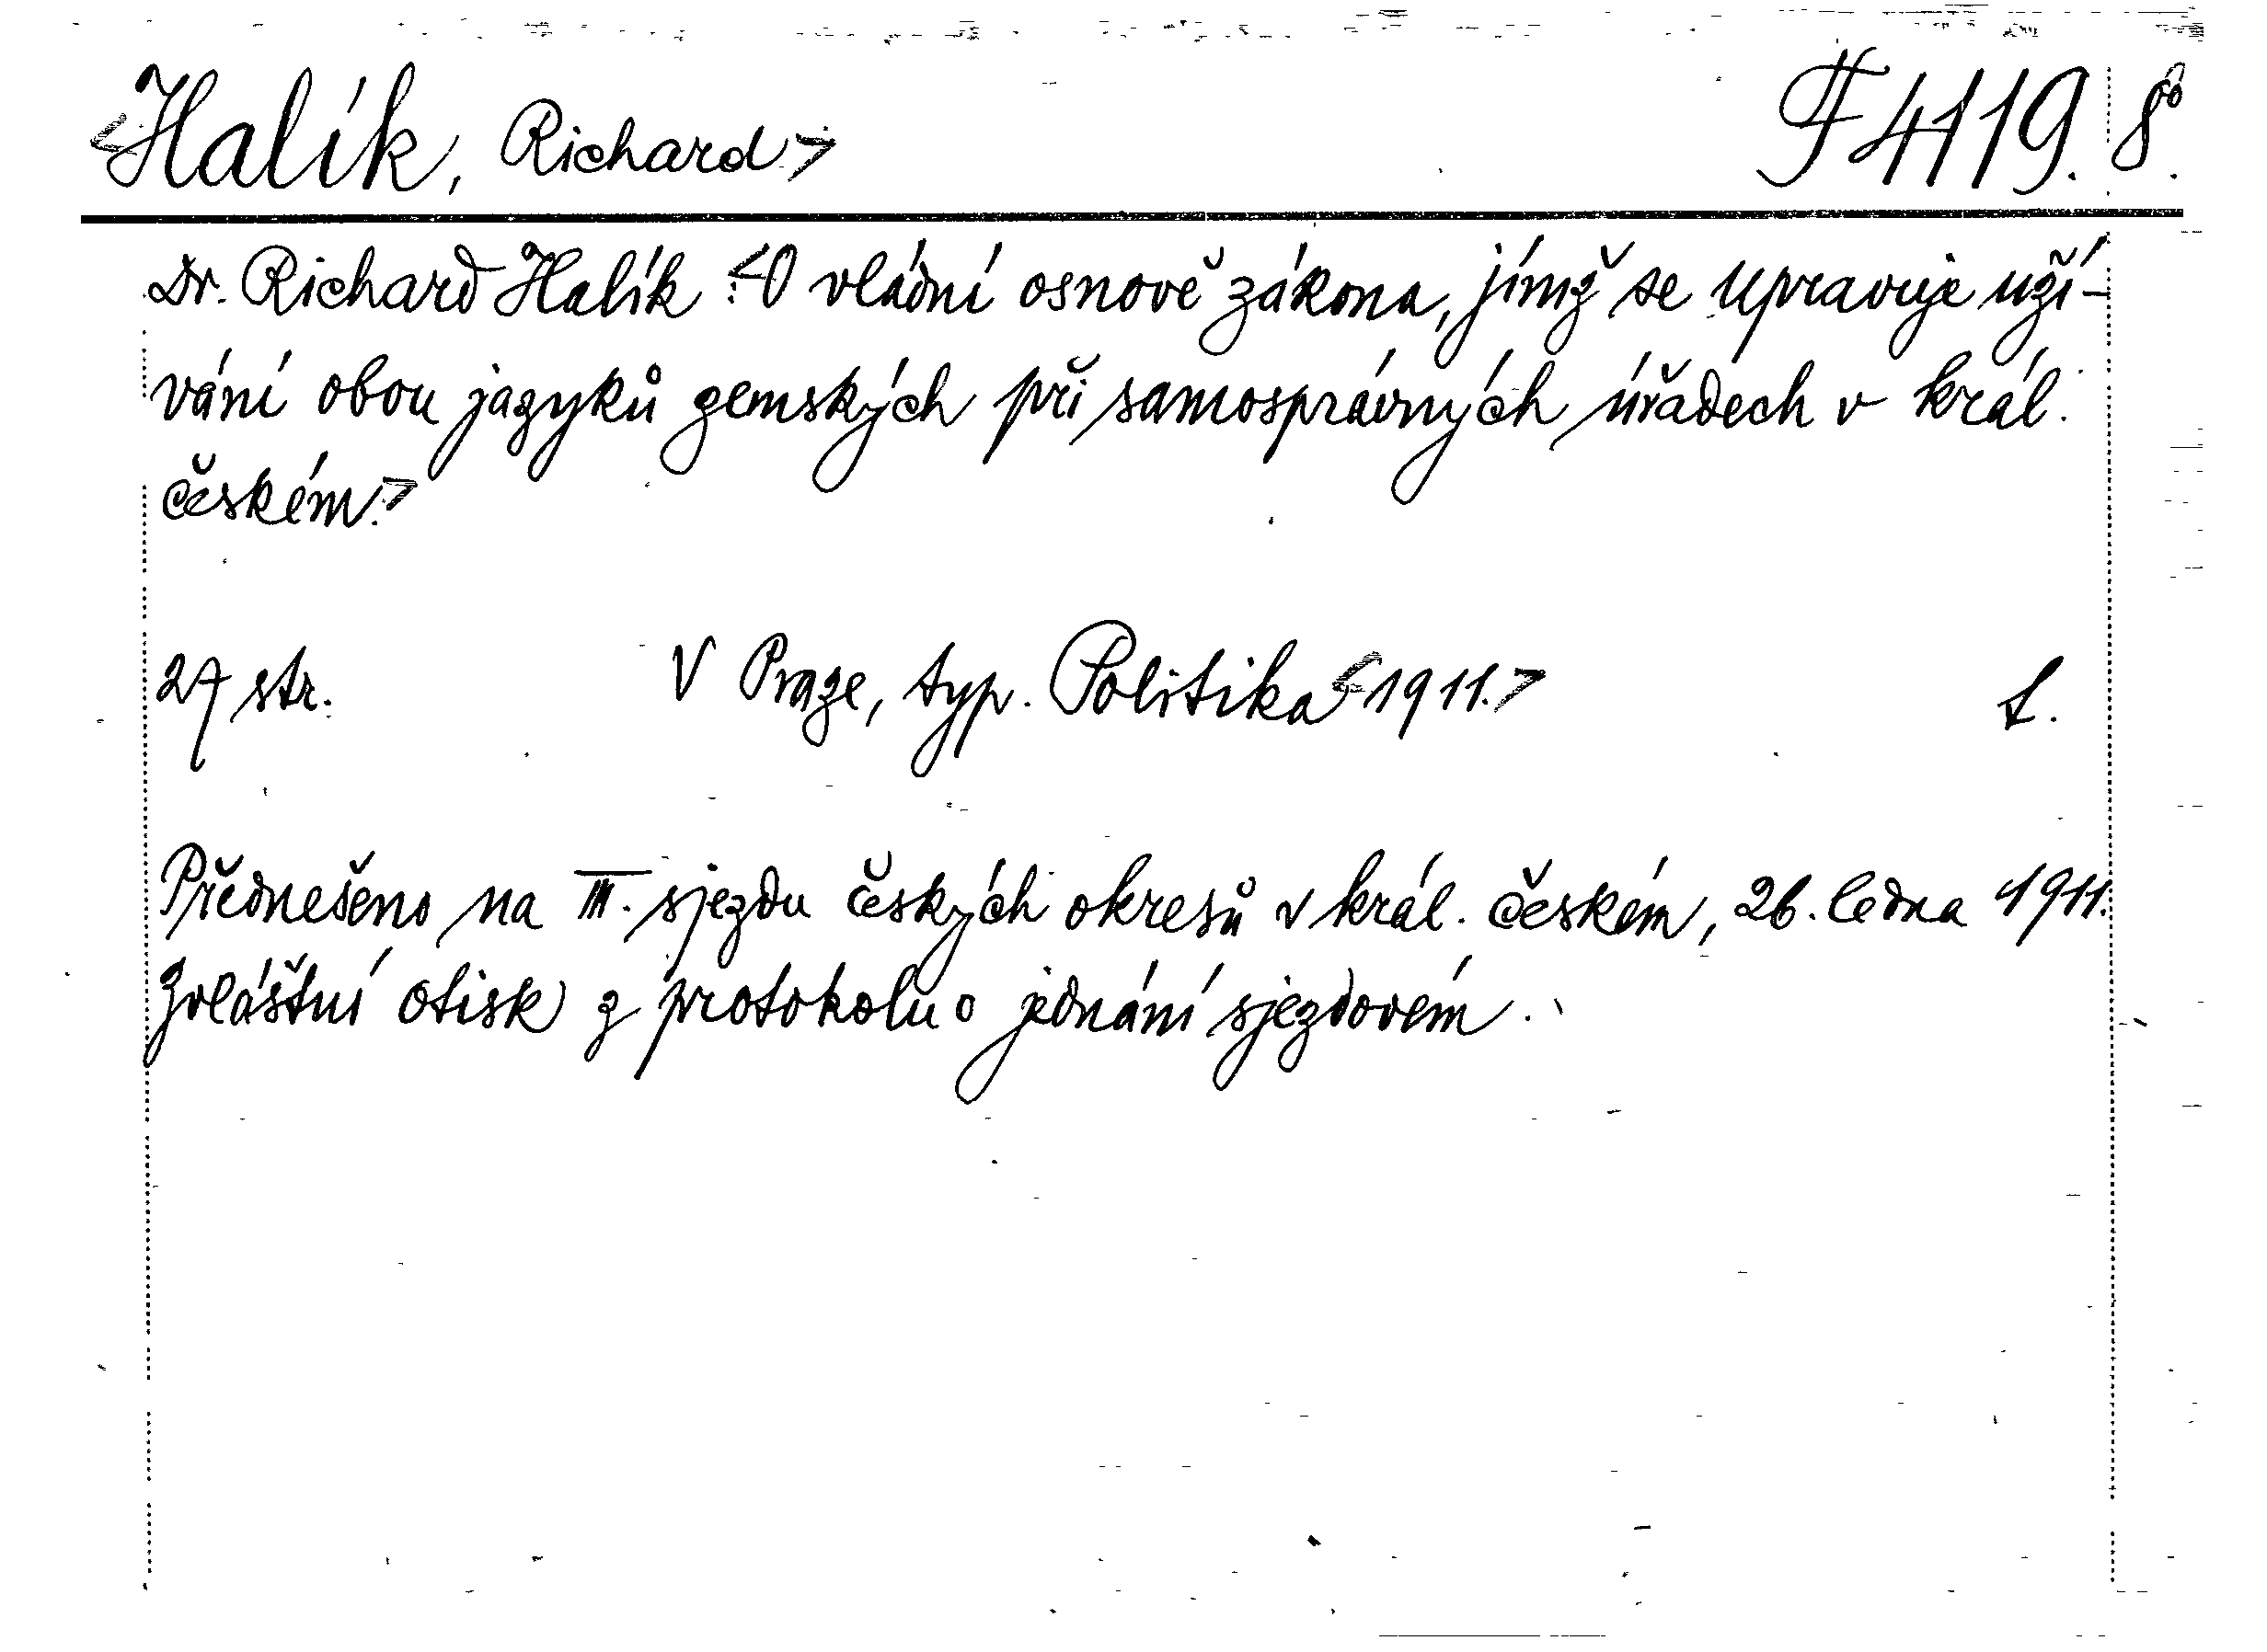 <Halík, Richard> F 4119. 8°.
Dr. Richard Halík : <O vládní osnově zákona, jímž se upravuje uží-
vání obou jazyků zemských při samosprávných úřadech v král.
českém.>
27 str. V Praze, typ. Politika <1911.> L.
Předneseno na III. sjezdu českých okresů v král. českém, 26. ledna 1911.
Zvláštní otisk z protokolu o jednání sjezdovém.